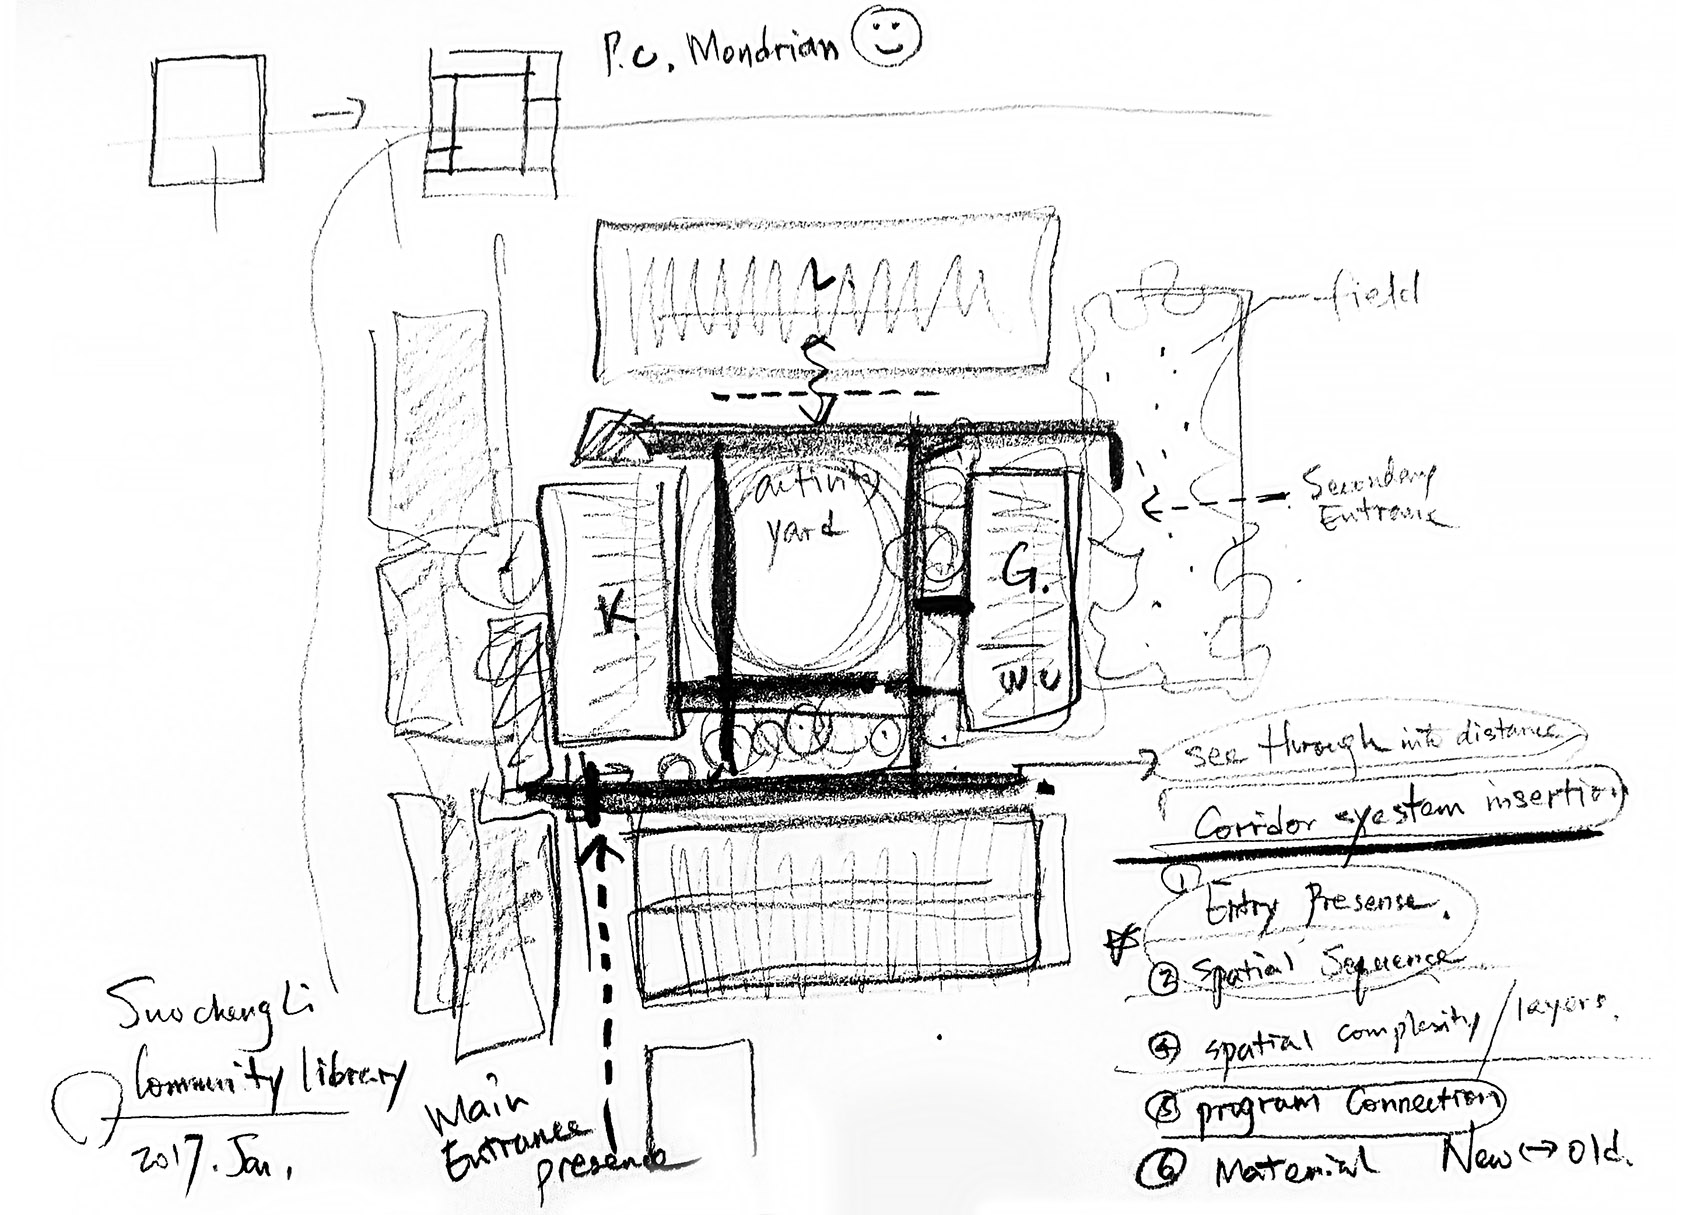 P.C. Mondrian
L
field
activity
yard
Secondary
Entrance
K.
G.
W.C
see through into distance
Corridor syestem insertion
① Entry Presense.
② Spatial Sequence
④ spatial complexity / layers.
⑤ program Connection
⑥ Material New ↔ Old.
SuochengLi
Community Library
2017. Jan.
Main
Entrance
presence